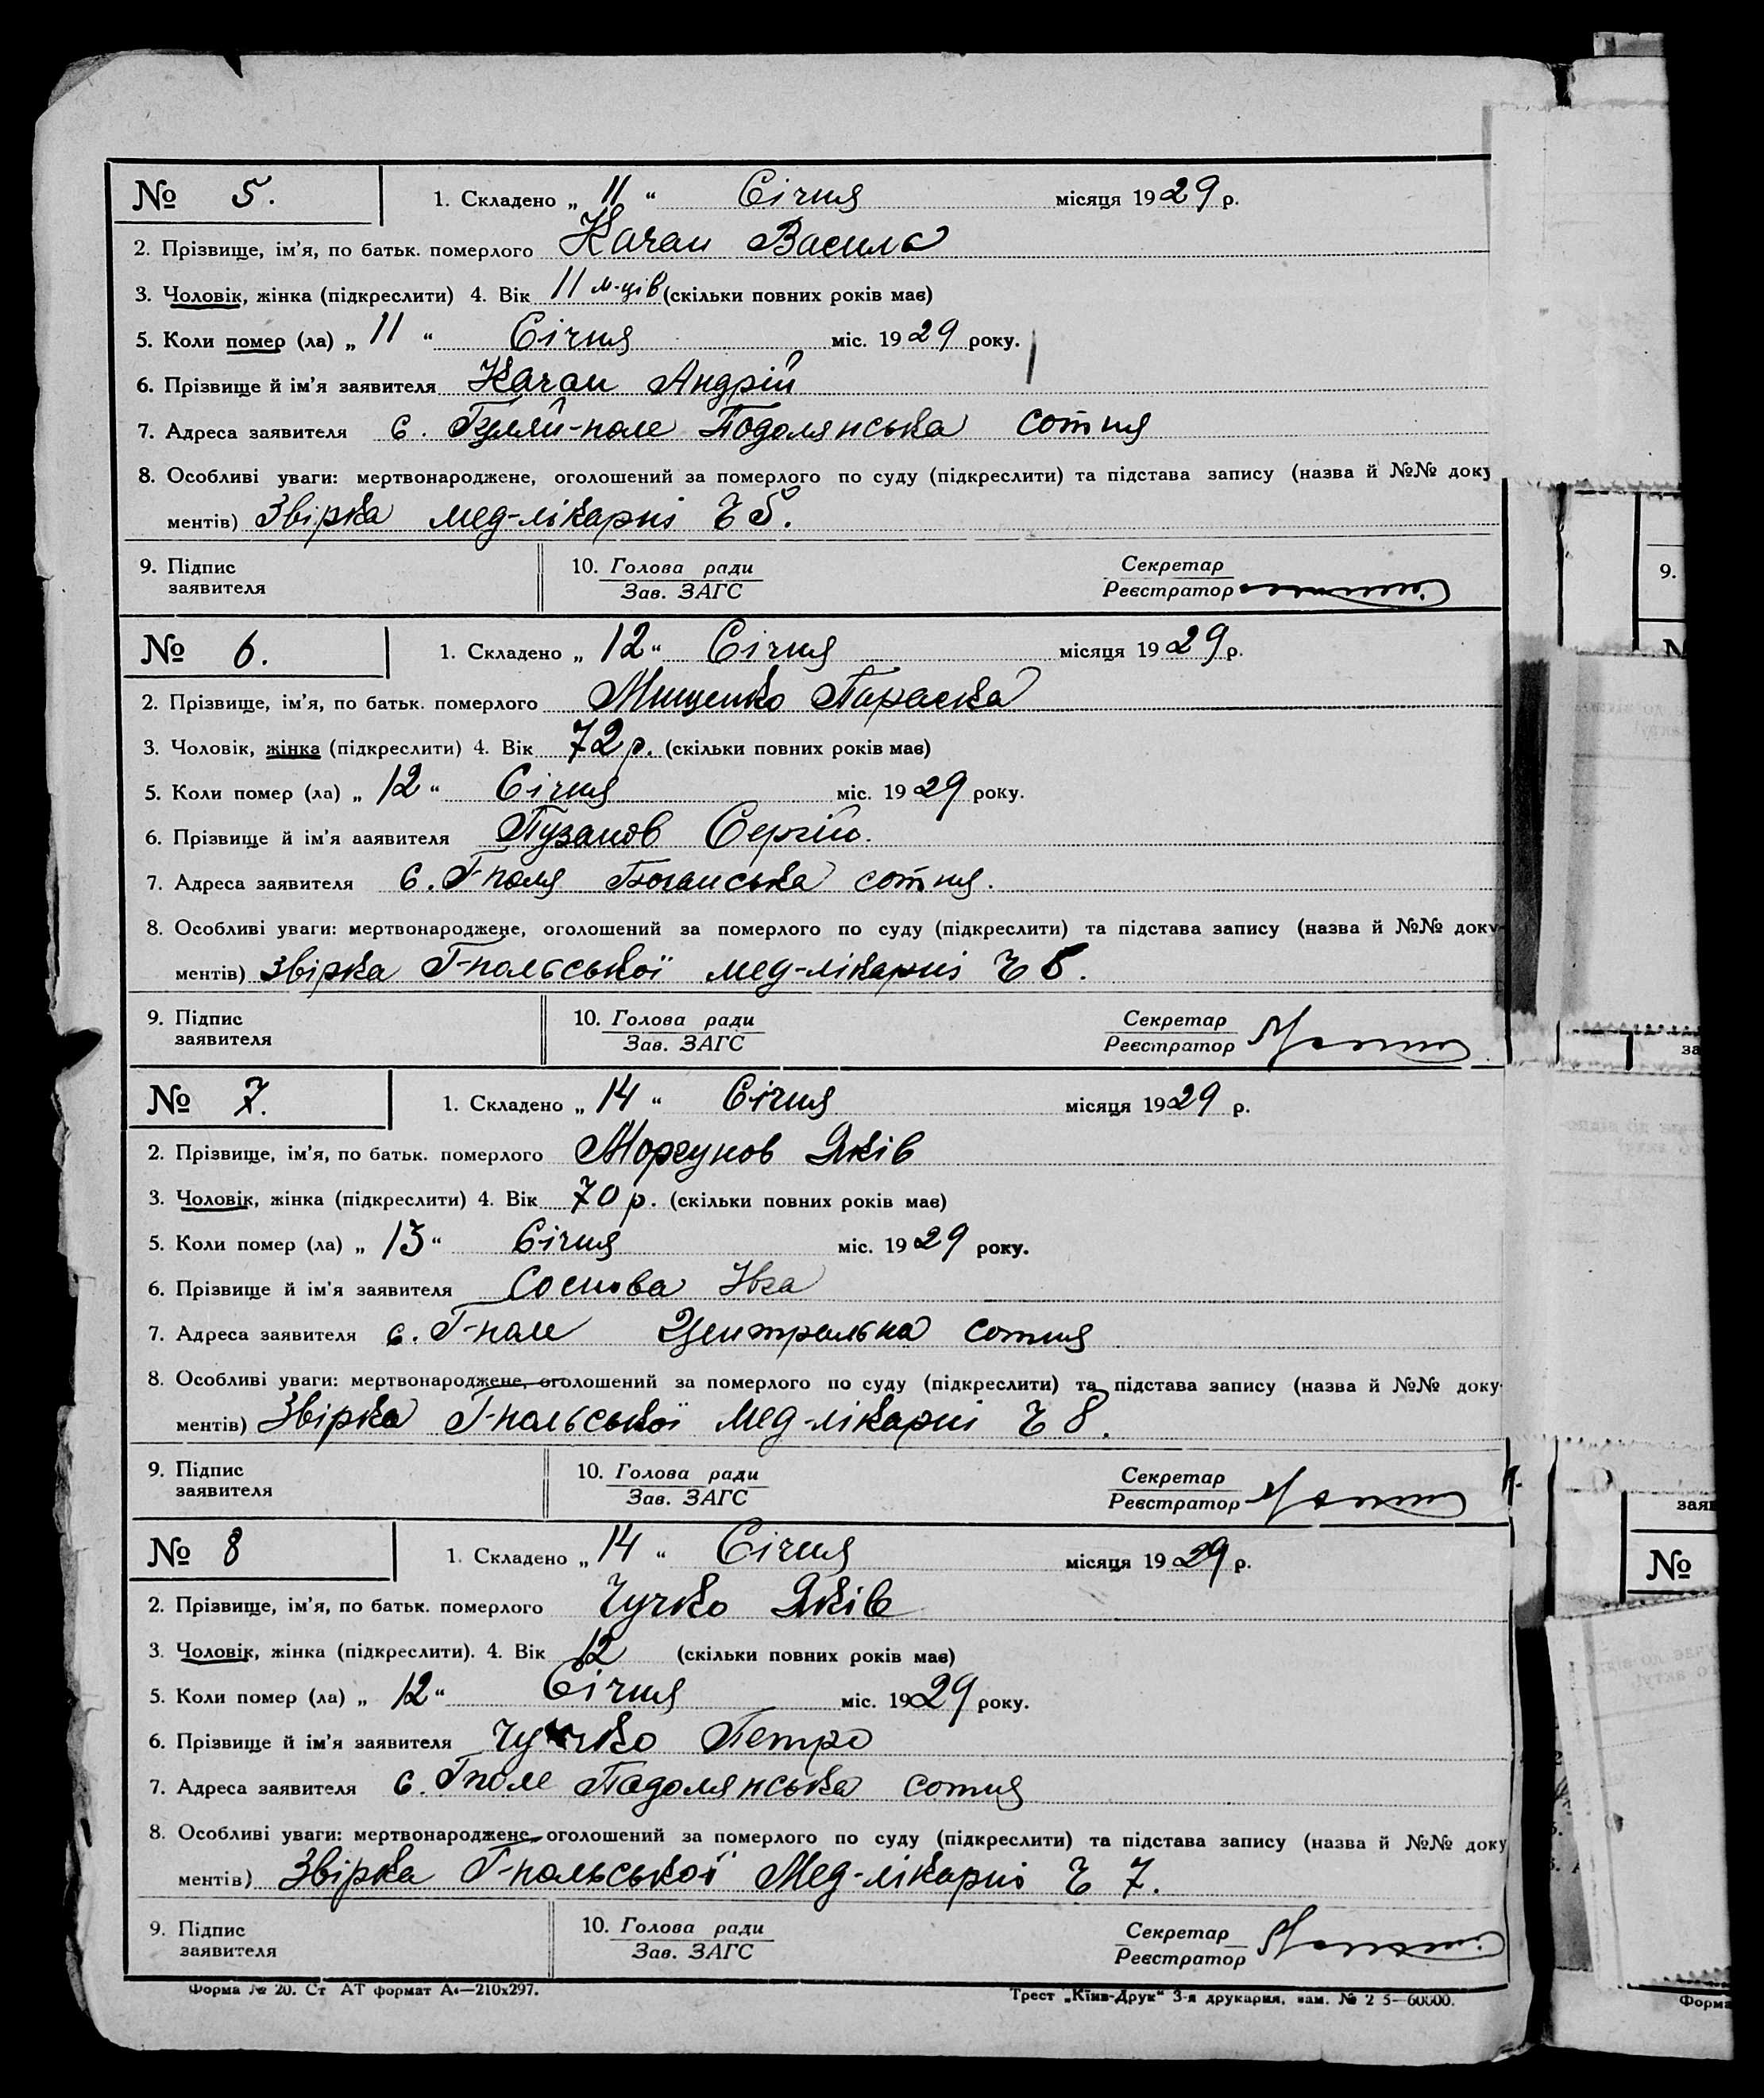 № 5. 1. Складено „ 11 “ Січня місяця 1929 р.
2. Прізвище, ім'я, по батьк. померлого Качан Василь
3. Чоловік, жінка (підкреслити) 4. Вік 11 м-ців (скільки повних років має)
5. Коли помер (ла) „ 11 “ Січня міс. 1929 року.
6. Прізвище й ім'я заявителя Качан Андрій
7. Адреса заявителя с. Гуляй-поле Подолянська сотня
8. Особливі уваги: мертвонароджене, оголошений за померлого по суду (підкреслити) та підстава запису (назва й №№ доку
ментів) Звірка мед-лікарні Ч 5.
9. Підпис заявителя 10. Голова ради Зав. ЗАГС Секретар Реєстратор
№ 6. 1. Складено „ 12 “ Січня місяця 1929 р.
2. Прізвище, ім'я, по батьк. померлого Мищенко Параска
3. Чоловік, жінка (підкреслити) 4. Вік 72 р. (скільки повних років має)
5. Коли помер (ла) „ 12 “ Січня міс. 1929 року.
6. Прізвище й ім'я ааявителя Пузанов Сергій.
7. Адреса заявителя с. Г-поля сотня.
8. Особливі уваги: мертвонароджене, оголошений за померлого по суду (підкреслити) та підстава запису (назва й №№ доку-
ментів) Звірка Г-польської мед-лікарні Ч 6.
9. Підпис заявителя 10. Голова ради Зав. ЗАГС Секретар Реєстратор
№ 7. 1. Складено „ 14 “ Січня місяця 1929 р.
2. Прізвище, ім'я, по батьк. померлого Моргунов Яків
3. Чоловік, жінка (підкреслити) 4. Вік 70 р. (скільки повних років має)
5. Коли помер (ла) „ 13 “ Січня міс. 1929 року.
6. Прізвище й ім'я заявителя Соснова Ивга
7. Адреса заявителя с. Г-поле Центральна сотня
8. Особливі уваги: мертвонароджене, оголошений за померлого по суду (підкреслити) та підстава запису (назва й №№ доку-
ментів) Звірка Г-польської Мед-лікарні Ч 8.
9. Підпис заявителя 10. Голова ради Зав. ЗАГС Секретар Реєстратор
№ 8 1. Складено „ 14 “ Січня місяця 1929 р.
2. Прізвище, ім'я, по батьк. померлого Чучко Яків
3. Чоловік, жінка (підкреслити). 4. Вік 12 (скільки повних років має)
5. Коли помер (ла) „ 12 “ Січня міс. 1929 року.
6. Прізвище й ім'я заявителя Чучко Петро
7. Адреса заявителя с. Гполе Подолянська сотня
8. Особливі уваги: мертвонароджене, оголошений за померлого по суду (підкреслити) та підстава запису (назва й №№ доку
ментів) Звірка Г-польської Мед-лікарні Ч 7.
9. Підпис заявителя 10. Голова ради Зав. ЗАГС Секретар Реєстратор
Форма № 20. Ст АТ формат А4—210х297. Трест „Київ-Друк“ 3-я друкарня, зам. № 2 5—60000.
9.
№
Форма